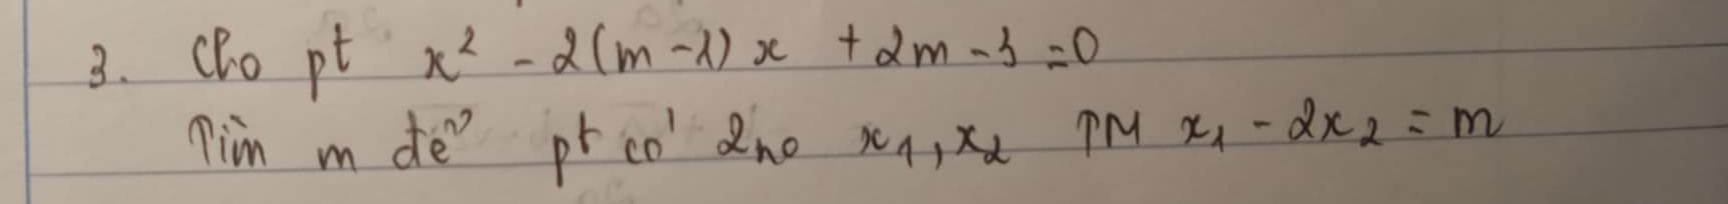 3. Cho pt x² - 2(m-1)x + 2m - 3 = 0
Tìm m để pt có 2no x₁, x₂ TM x₁ - 2x₂ = m